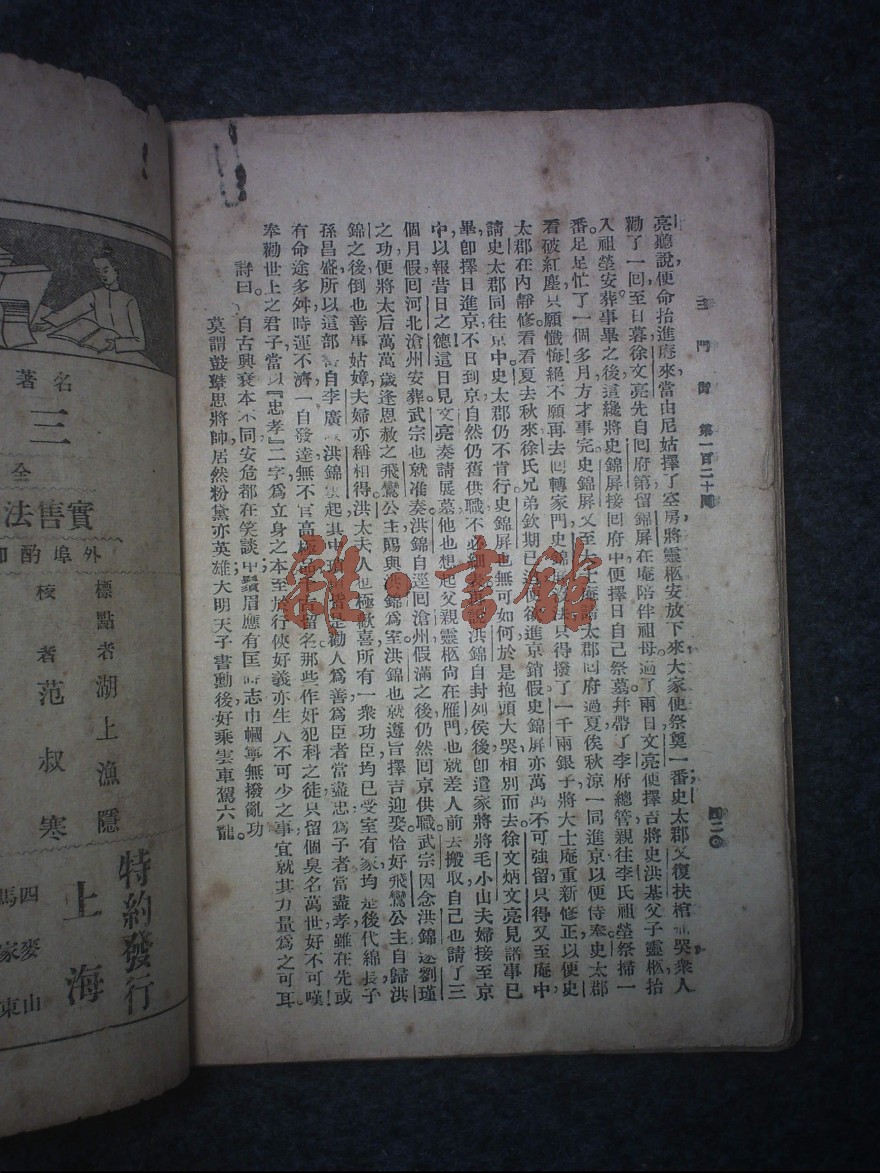 三門街 第一百二十回
四二〇
亮聽說便命抬進庵來當由尼姑擇了空房將靈柩安放下來大家便祭奠一番史太郡又復扶棺 哭衆人
勸了一回至日暮徐文亮先自回府第留錦屏在庵陪伴祖母過了兩日文亮便擇吉將史洪基父子靈柩抬
入祖塋安葬事畢之後這纔將史錦屏接回府中便擇日自己祭墓幷帶了李府總管親往李氏祖塋祭掃一
番足足忙了一個多月方才事完史錦屏又至大士庵請太郡回府過夏俟秋涼一同進京以便侍奉史太郡
看破紅塵只願懺悔絕不願再去回轉家門史錦 只得撥了一千兩銀子將大士庵重新修正以便史
太郡在內靜修看看夏去秋來徐氏兄弟欽期已 欲進京銷假史錦屏亦萬萬不可強留只得又至庵中
請史太郡同往京中史太郡仍不肯行史錦屏也無可如何於是抱頭大哭相別而去徐文炳文亮見諸事已
畢卽擇日進京不日到京自然仍舊供職不必細 洪錦自封列侯後卽遣家將將毛小山夫婦接至京
中以報昔日之德這日見文亮奏請展墓他也想起父親靈柩尙在雁門也就差人前去搬取自己也請了三
個月假回河北滄州安葬武宗也就准奏洪錦自逕回滄州假滿之後仍然回京供職武宗因念洪錦逐劉瑾
之功便將太后萬萬歲逢恩赦之飛鸞公主賜與洪錦爲室洪錦也就遵旨擇吉迎娶恰好飛鸞公主自歸洪
錦之後倒也善事姑嫜夫婦亦稱相得洪太夫人也極歡喜所有一衆功臣均已受室有家均是後代綿長子
孫昌盛所以這部書自李廣 洪錦 起其中 皆是勸人爲善爲臣者當盡忠爲子者當盡孝雖在先或
有命途多舛時運不濟一自發達無不官高極 千古留名那些作奸犯科之徒只留個臭名萬世好不可嘆
奉勸世上之君子當以『忠孝』二字爲立身之本至於行俠好義亦生人不可少之事宜就其力量爲之可耳
詩曰 自古興衰本不同安危都在笑談中鬚眉應有匡時志巾幗寧無撥亂功
莫謂鼓鼙思將帥居然粉黛亦英雄大明天子書勳後好乘雲車駕六龍
名著
三
全
實售法
外埠酌加
標點者 湖上漁隱
校者 范叔寒
特約發行
上海
四
馬
麥家
山東
雜·書館